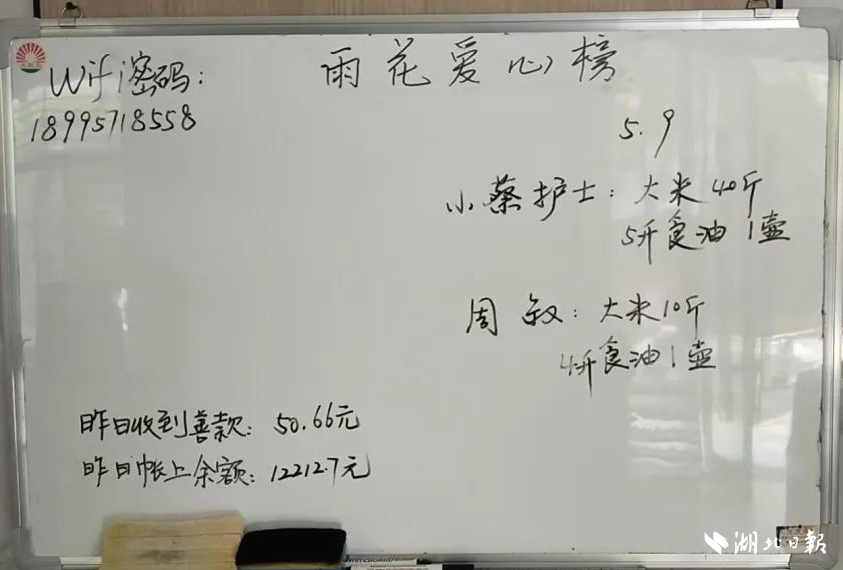 雨花爱心榜
Wifi密码:
18995718558
5.9
小蔡护士: 大米40斤
5升食油1壶
周敏: 大米10斤
4升食油1壶
昨日收到善款: 50.66元
昨日帐上余额: 12212.7元
湖北日报